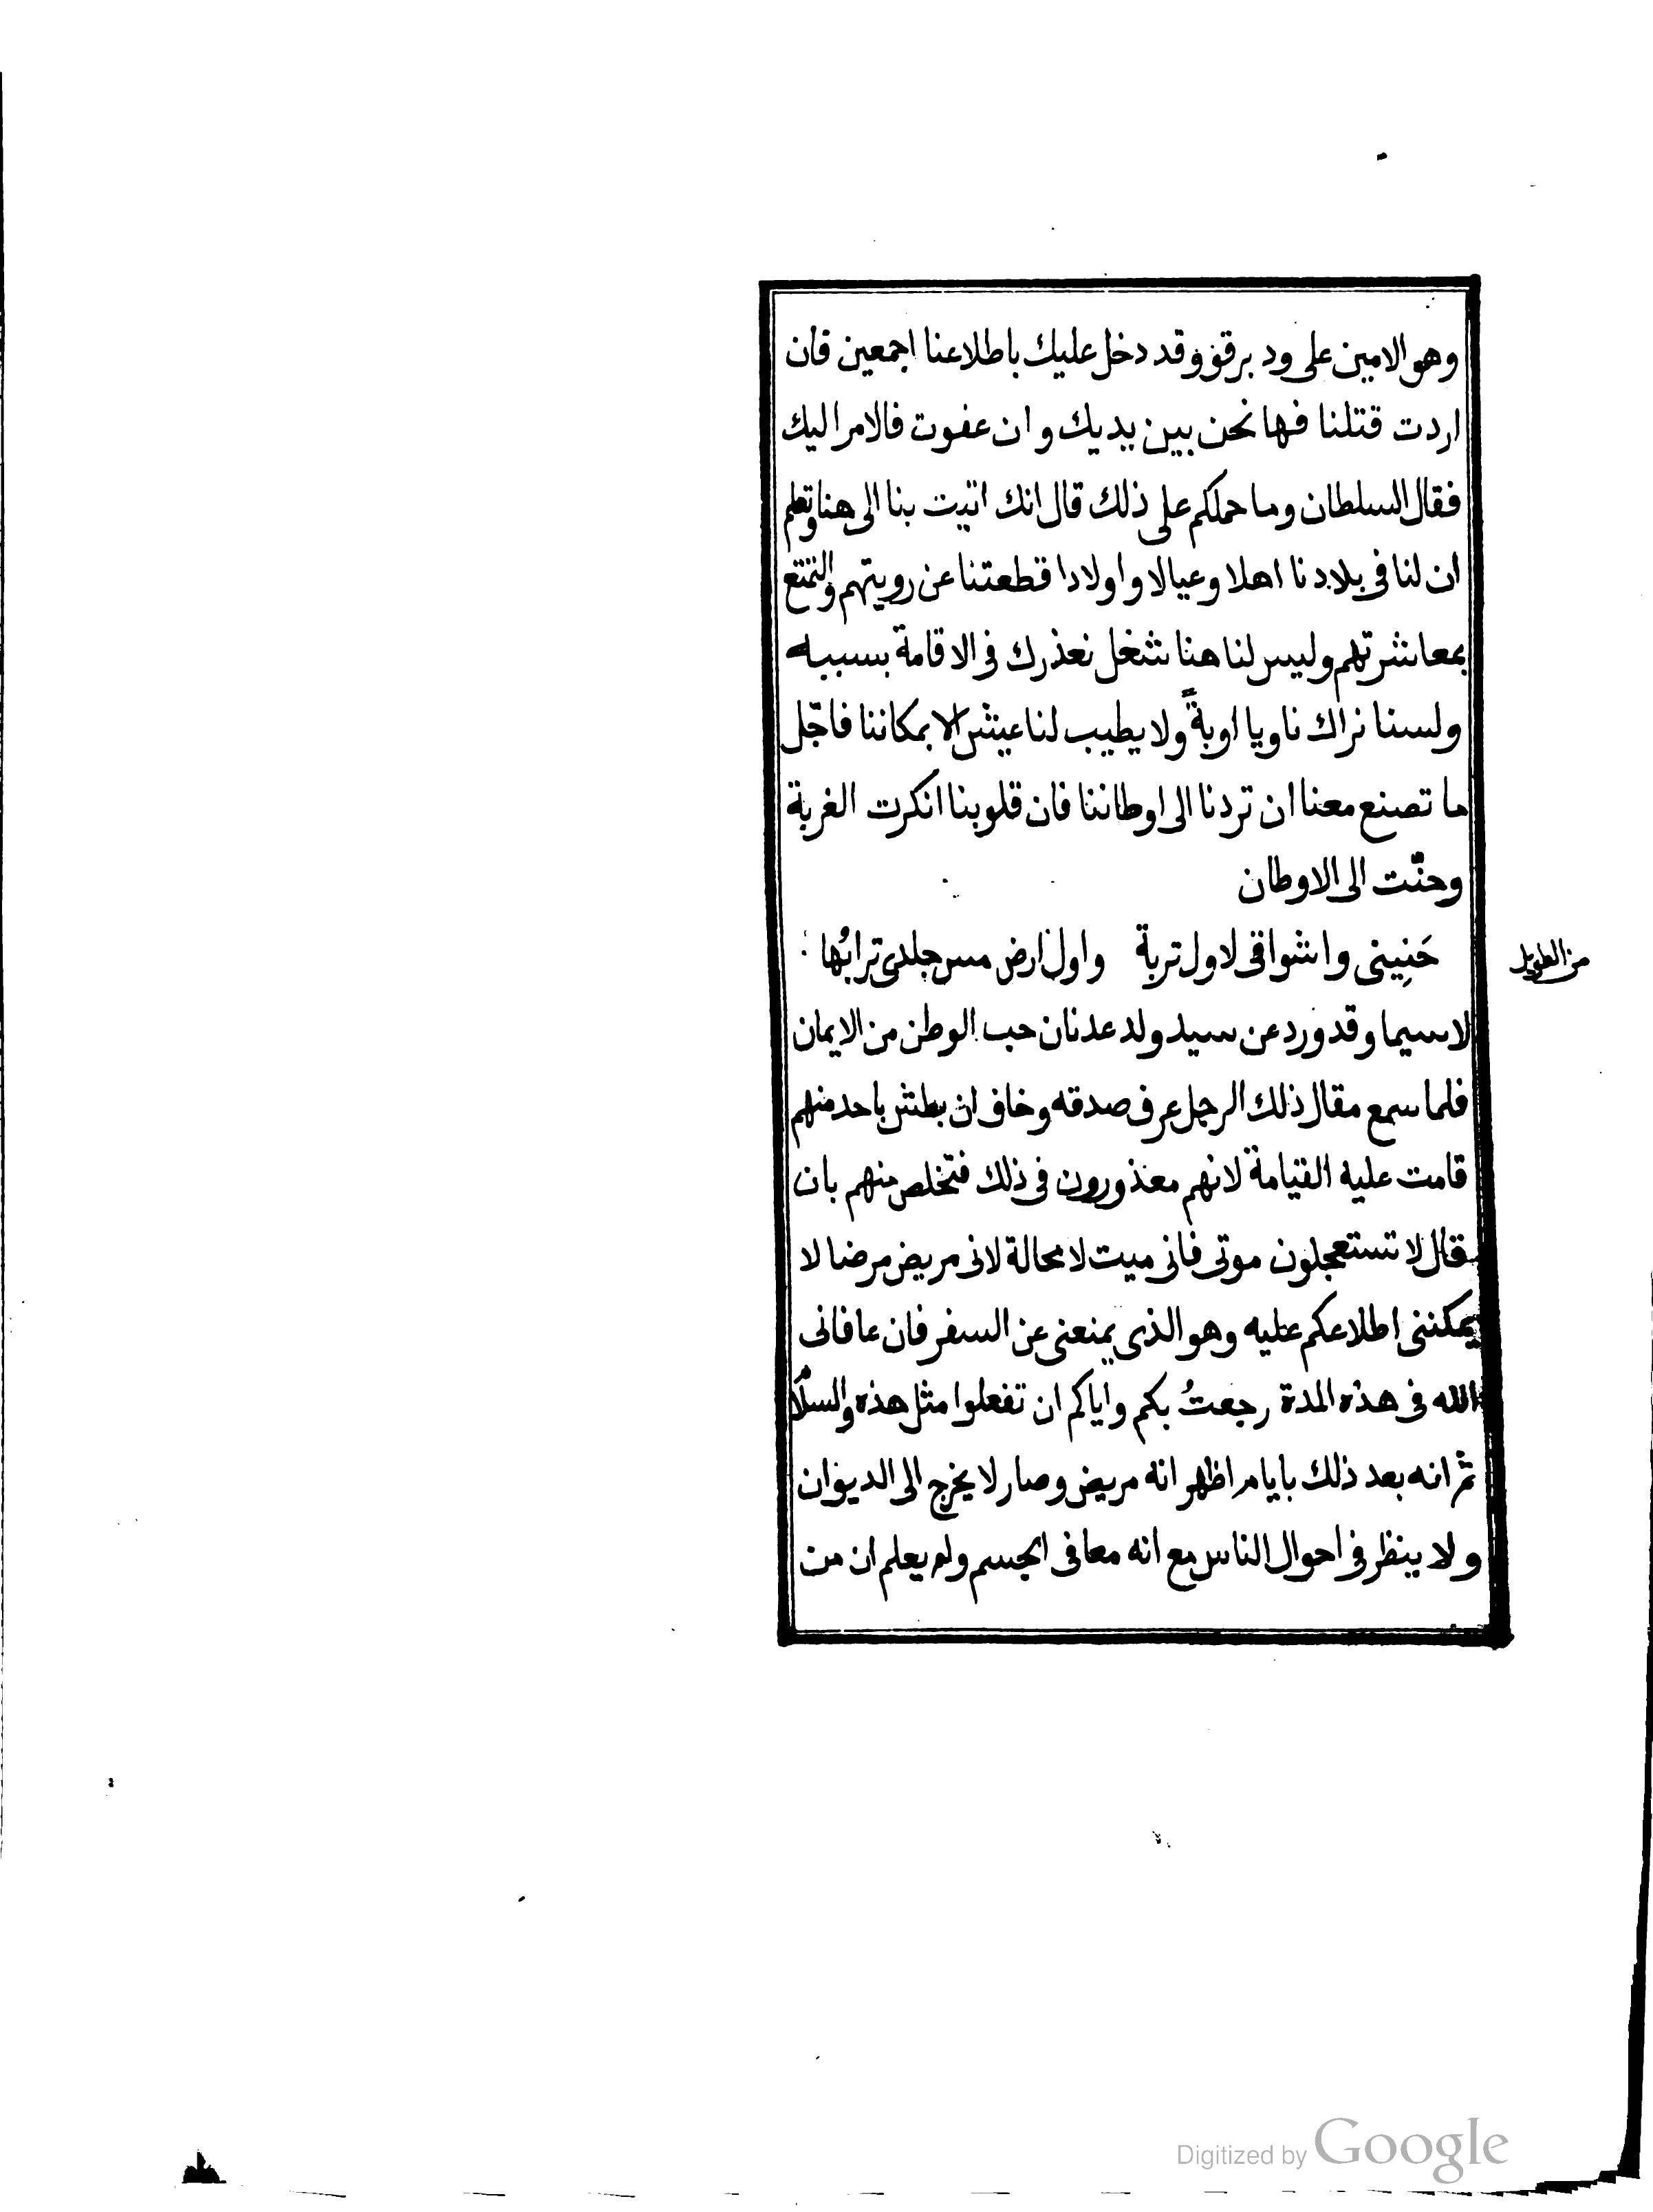 وهو الامين على ود برقو وقد دخل عليك باطلاعنا اجمعين فان
اردت قتلنا فها نحن بين يديك وان عفوت فالامر اليك
فقال السلطان وما حملكم على ذلك قال انك اتيت بنا الى هنا وتعلم
ان لنا فى بلادنا اهلا وعيالا واولادا قطعتنا عن رويتهم والتمتع
بمعاشرتهم وليس لنا هنا شغل نعذرك فى الاقامة بسببه
ولسنا نراك ناويا اوبةً ولا يطيب لنا عيش الا بمكاننا فاجّل
ما تصنع معنا ان تردنا الى اوطاننا فان قلوبنا انكرت الغربة
وحنّت الى الاوطان
حَنِينى واشواقى لاول تربة واول ارض مس جلدى ترابُها
من الطويل
لا سيما وقد ورد عن سيد ولد عدنان حب الوطن من الايمان
فلما سمع مقال ذلك الرجل عرف صدقه وخاف ان بطش باحد منهم
قامت عليه القيامة لانهم معذورون فى ذلك فتخلص منهم بان
قال لا تستعجلون موتى فانى ميت لا محالة لانى مريض مرضا لا
يمكننى اطلاعكم عليه وهو الذى يمنعنى عن السفر فان عافانى
الله فى هذه المدة رجعتُ بكم واياكم ان تفعلوا مثل هذه والسلام
ثم انه بعد ذلك بايام اظهر انه مريض وصار لا يخرج الى الديوان
ولا ينظر فى احوال الناس مع انه معافى الجسم ولم يعلم ان من
Digitized by Google